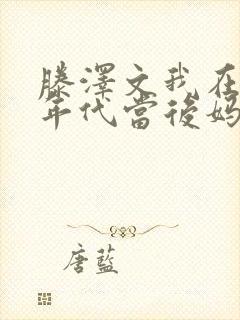 滕澤文我在
年代當後媽
唐藍